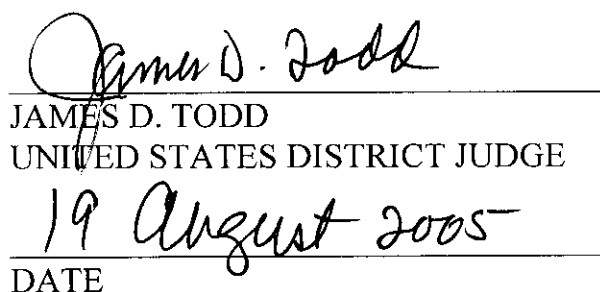 James D. Todd
JAMES D. TODD
UNITED STATES DISTRICT JUDGE
19 August 2005
DATE